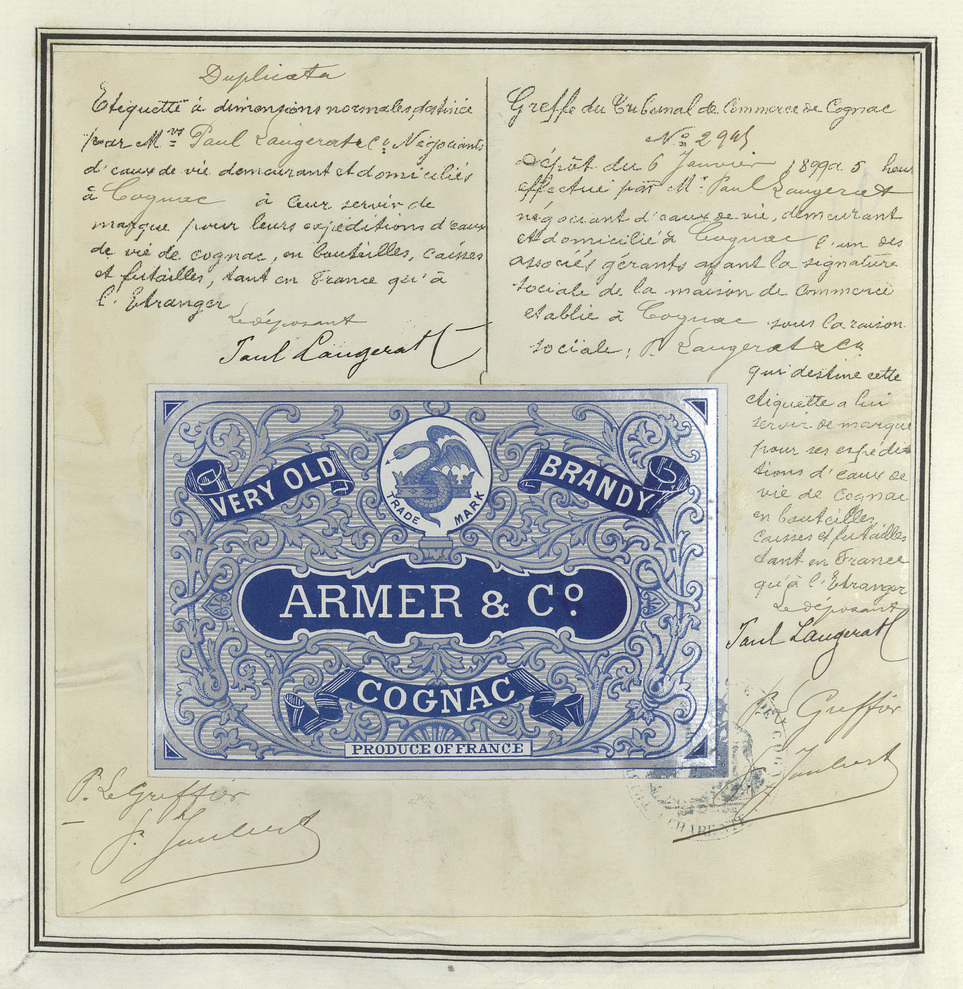 Duplicata
Etiquette à dimensions normales destinée
par Mrs Paul Laugerat & Co Négociants
d'eaux de vie demeurant et domiciliés
à Cognac à leur servir de
marque pour leurs expéditions d'eaux
de vie de cognac, en bouteilles, caisses
et futailles, tant en France qu'à
l'Etranger
Le déposant
Paul Laugerat
Greffe du Tribunal de Commerce de Cognac
No 2945
Dépôt du 6 Janvier 1899 a 5 heur
effectué par Mr Paul Laugerat
négociant d'eaux de vie, demeurant
et domicilié à Cognac l'un des
associés gérants ayant la signature
sociale de la maison de commerce
etablie à Cognac sous la raison
sociale; P. Laugerat & Co
qui destine cette
étiquette a lui
servir de marque
pour ses expédi
tions d'eaux de
vie de Cognac
en bouteilles,
caisses et futailles
tant en France
qu'à l'Etranger
Le déposant
Paul Laugerat
VERY OLD
BRANDY
TRADE MARK
ARMER & Co
COGNAC
PRODUCE OF FRANCE
P. Le Greffier
Joubert
P. Le Greffier
Joubert
DE COGN
CHARENTE